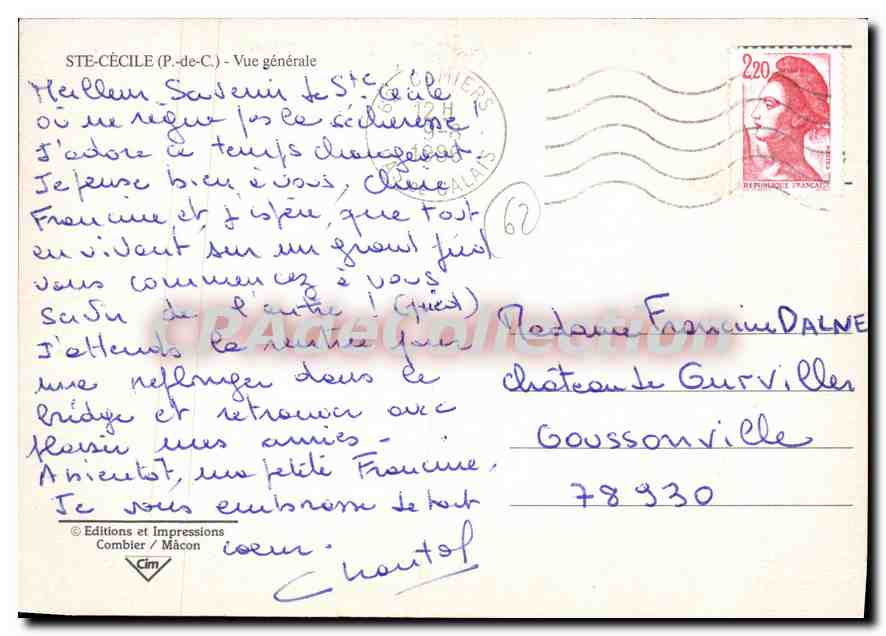 STE-CÉCILE (P.-de-C.) - Vue générale
Meilleur Souvenir de Ste Cécile
où ne règne pas la sécheresse !
J'adore ce temps changeant.
Je pense bien à vous, Chère
Francine et j'espère que tout
en vivant sur un grand pied
vous commencez à vous
servir de l'autre ! (pied)
J'attends la rentrée pour
me replonger dans le
bridge et retrouver avec
plaisir mes amies -
A bientôt, ma petite Francine,
Je vous embrasse de tout
coeur.
Chantal
© Editions et Impressions
Combier / Mâcon
Cim
12 H
PAS DE CALAIS
62
2,20
REPUBLIQUE FRANÇAISE
Madame Francine DALNE
Château de Gurviller
Goussonville
78930
CPAdeCollection.com